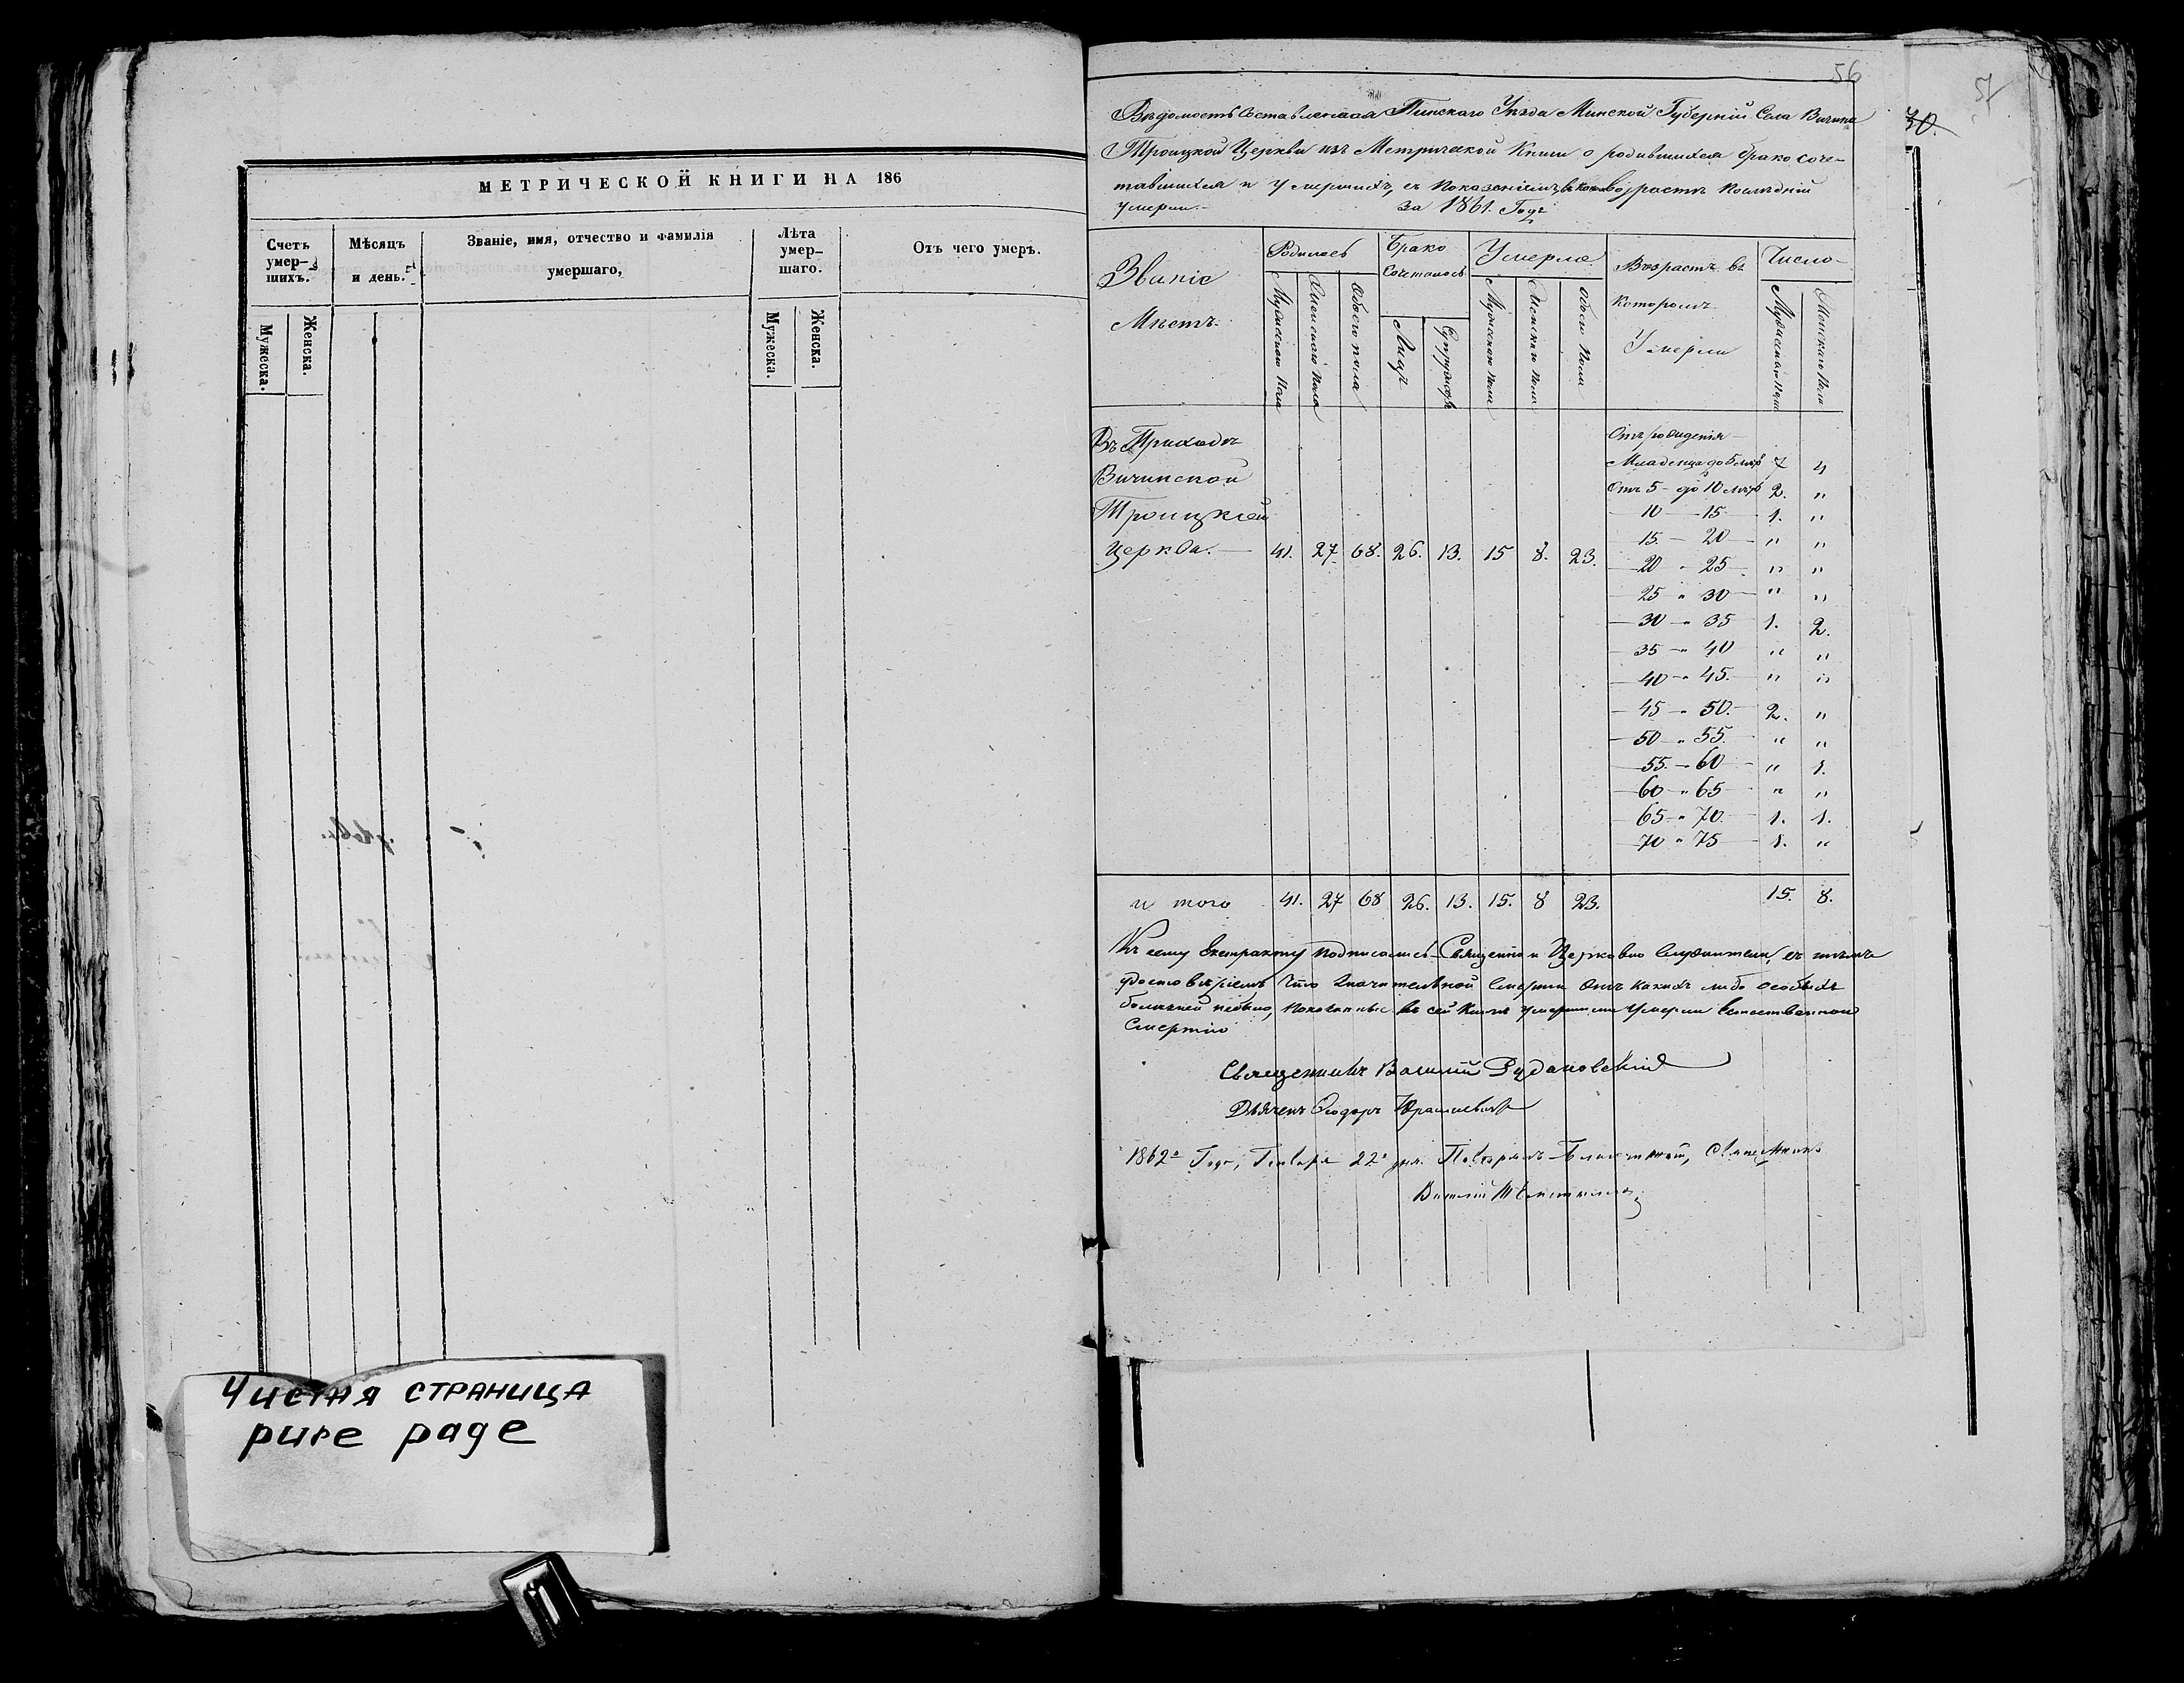 МЕТРИЧЕСКОЙ КНИГИ НА 186
Счетъ умер-шихъ.
Мѣсяцъ и день.
Званіе, имя, отчество и фамилія умершаго,
Лѣта умер-шаго.
Отъ чего умеръ.
Мужеска.
Женска.
Мужеска.
Женска.
Чистая страница
pure page
56
57
30.
Вѣдомость составленная Пинскаго Уѣзда Минской Губерніи Села Вичина
Троицкой Церкви изъ Метрической Книги о родившихся брако соче-
тавшихся и умершихъ, съ показаніемъ возрастѣ последніи
умерли. за 1861. Годъ
Званіе Мѣстъ.
Родилось
Брако Сочеталось
Умерло.
Возрастъ въ которомъ Умерли
Число
Мужескаго пола
Женскаго пола
Обоего пола
Лицъ
Супружествъ
Мужескаго пола
Женскаго пола
Обоего пола
Мужескаго пола
Женскаго пола
Въ Приходѣ
Вичинской
Троицкой
Церкви. 41. 27. 68. 26. 13. 15 8. 23.
Отъ рожденія
Младенца до 5 лѣтъ 7 4
Отъ 5 до 10 лѣтъ 2. "
10 - 15 1. "
15. - 20 " "
20 - 25 " "
25 " 30 " "
30 " 35 1. 2.
35 " 40 " "
40 " 45. " "
45 " 50. 2. "
50 " 55. " "
55. " 60 " 1.
60 " 65 " "
65 " 70. 1. 1.
70 " 75 1. "
и того 41. 27 68 26. 13. 15. 8 23. 15. 8.
Къ сему Екстракту подписались Священно и Церковно служители, съ тѣмъ
достовѣріемъ что значительной смерти отъ какихъ либо особыхъ
болезней небыло, показанные въ сей Книгѣ умершими умерли естественною
Смертію
Священникъ Василій Рудаковскій
Дьячекъ Ѳеодоръ
1862го Года, Генваря 22го дня. Повѣрялъ Благочинный, Священникъ